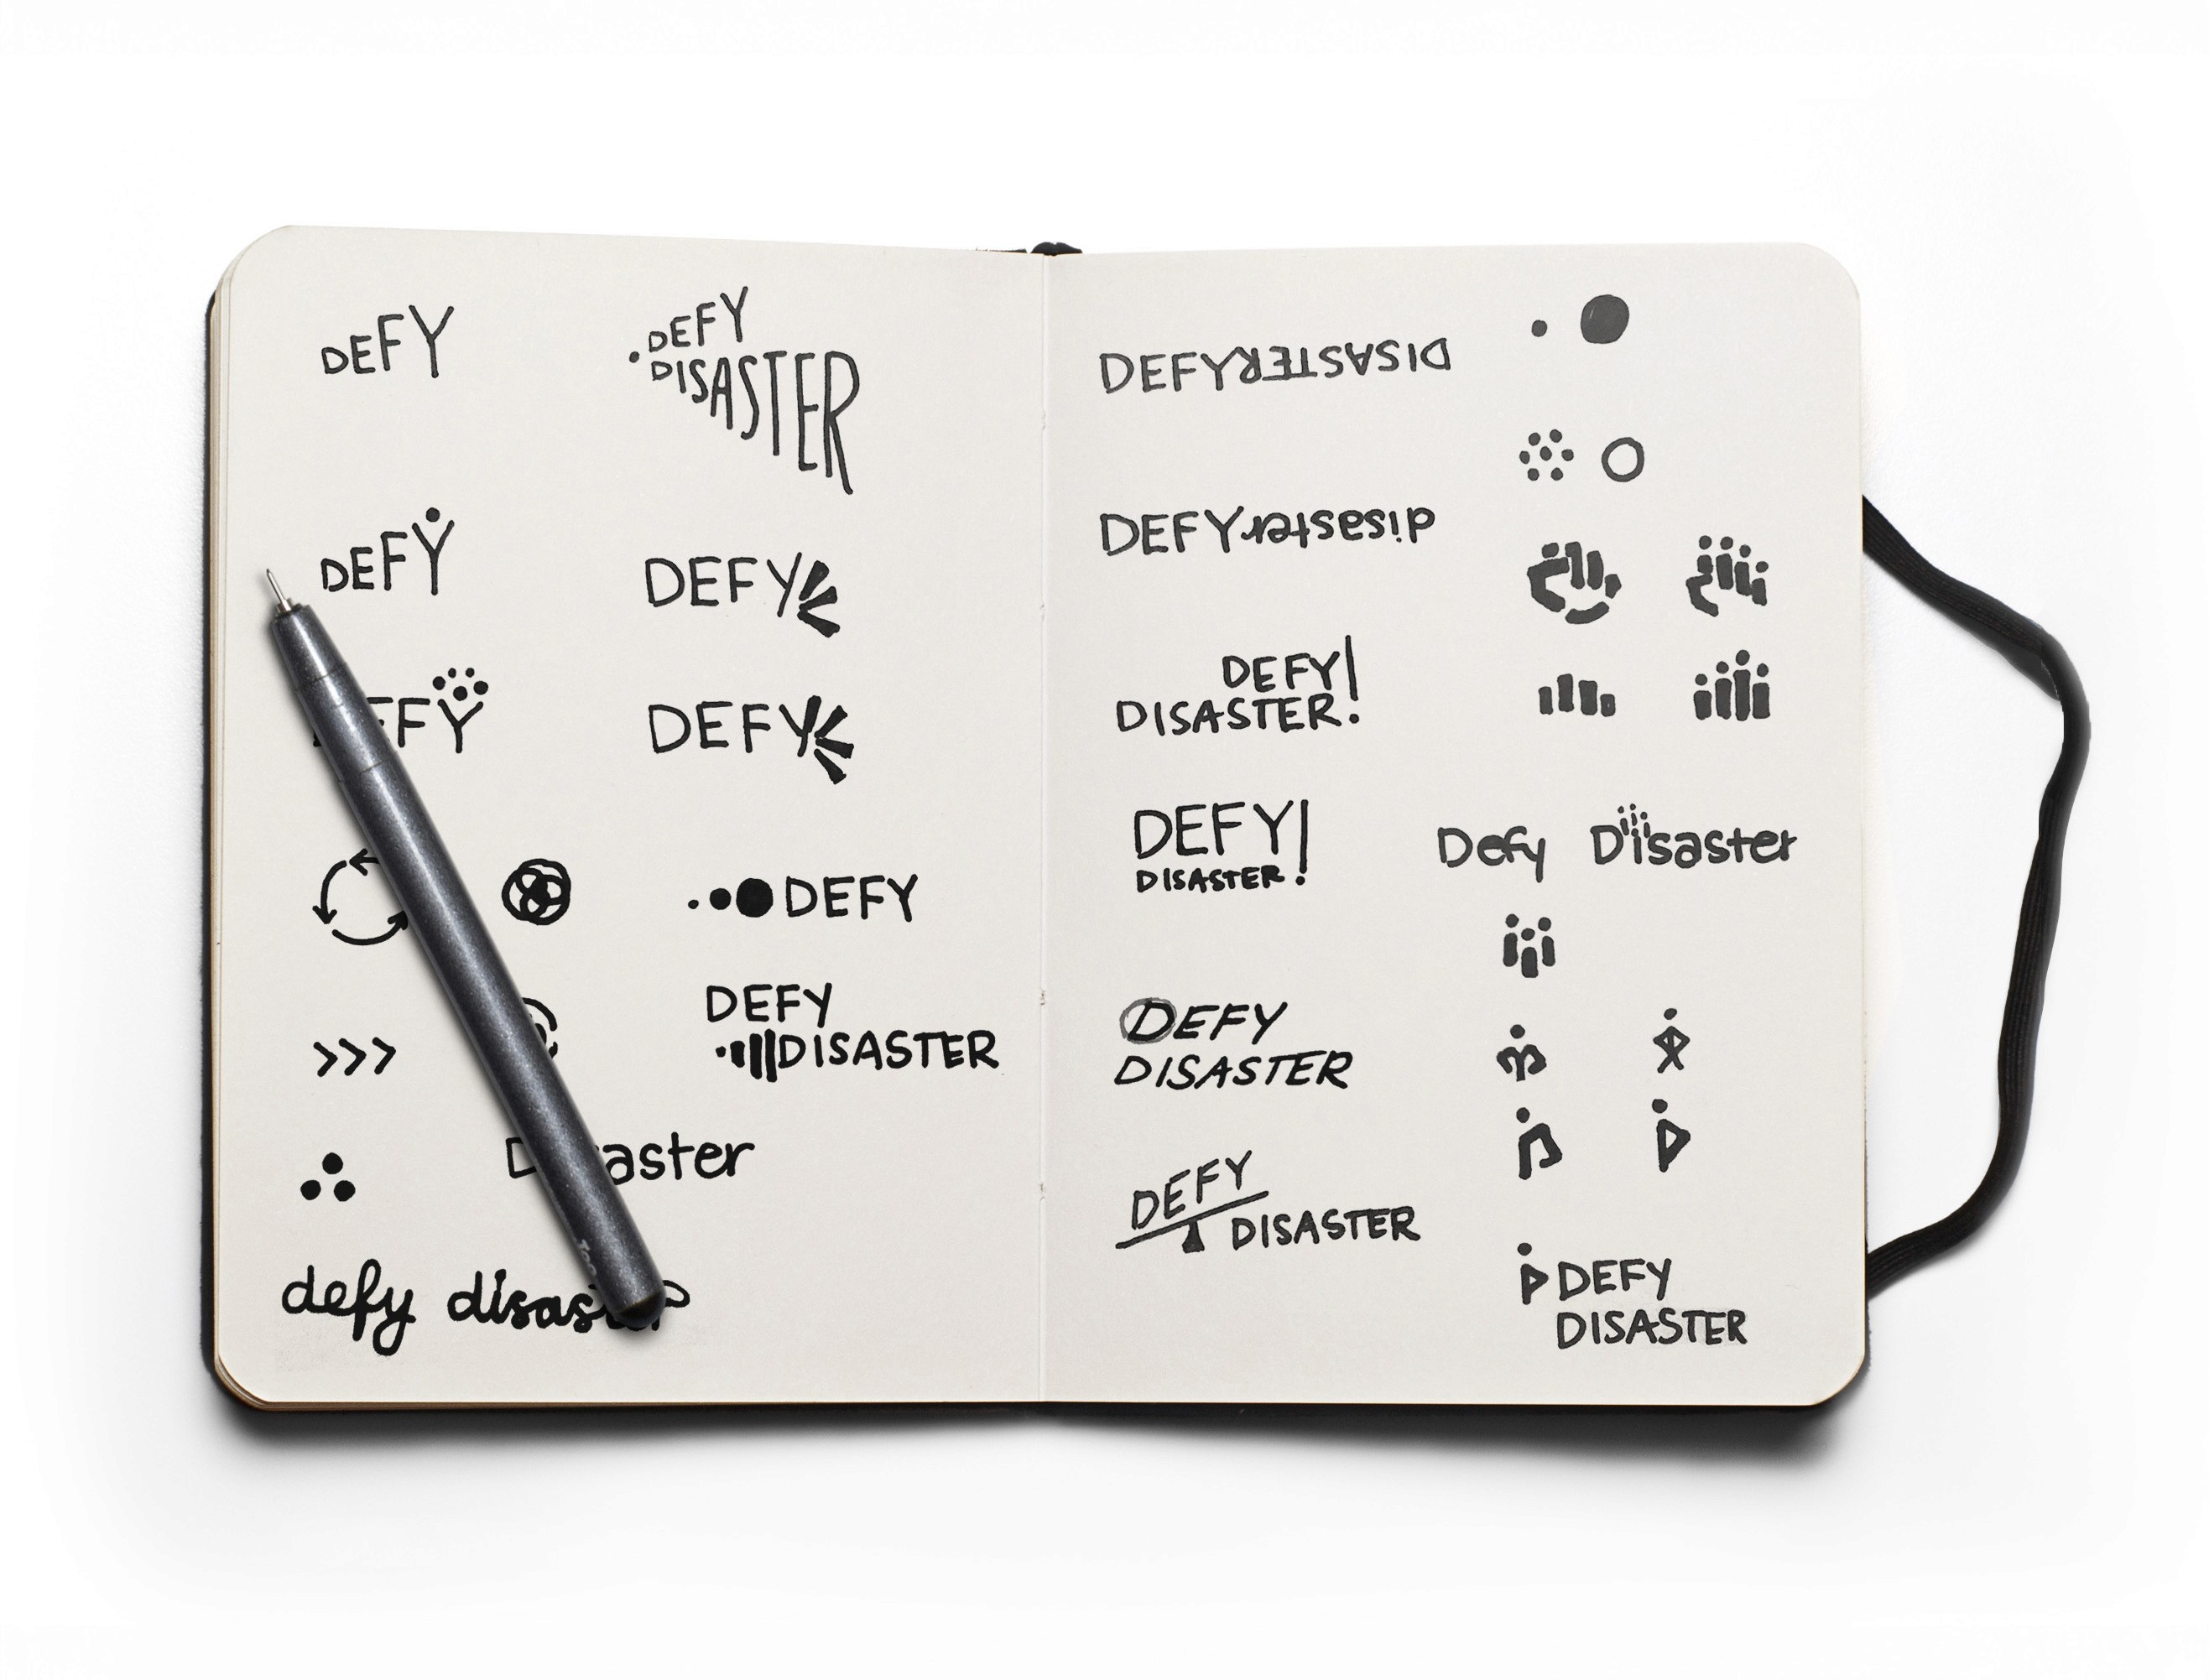 DEFY
DEFY
DISASTER
DEFY
DEFY
EFY
DEFY
DEFY
DEFY
DISASTER
aster
defy disast
DEFYDISASTER
DEFYdisaster
DEFY!
DISASTER.
DEFY!
DISASTER
Defy Diisaster
DEFY
DISASTER
DEFY
DISASTER
DEFY
DISASTER